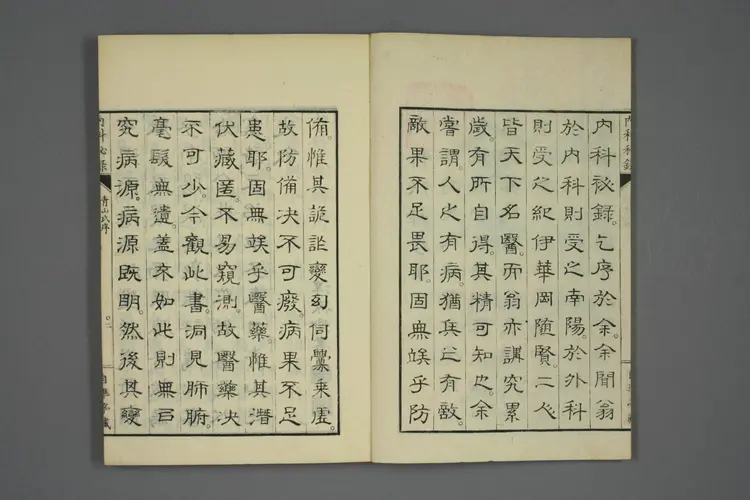 内科秘錄
内科祕錄。乞序於余。余聞翁
於内科則受之南陽。於外科
則受之紀伊華岡隨賢。二人
皆天下名醫。而翁亦講究累
歲。有所自得。其精可知也。余
嘗謂。人之有病。猶兵之有敵。
敵果不足畏耶。固無竢乎防
備。惟其詭詐變幻伺釁乘虛。
故防備決不可廢。病果不足
患耶。固無竢乎醫藥。惟其潛
伏藏匿。不易窺測。故醫藥決
不可少。今觀此書。洞見肺腑。
毫髮無遺。蓋不如此則無㠯
究病源。病源既明。然後其變
内科秘錄 青山氏序